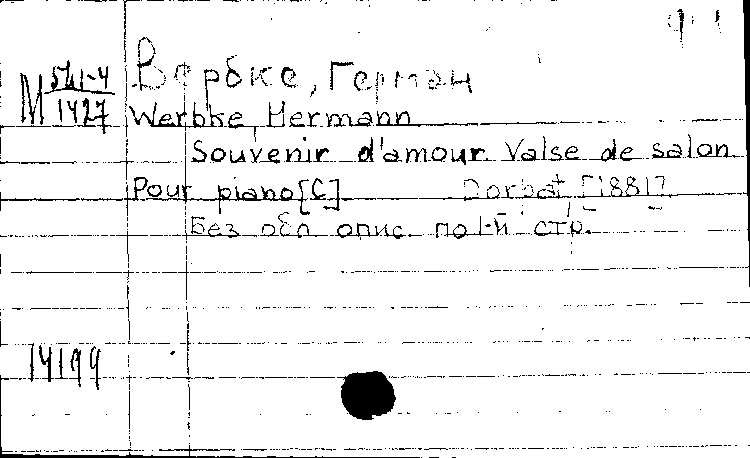 Вербке, Герман
М 571-4
1427
Werbke, Hermann
Souvenir d'amour. Valse de salon
Pour piano [C]. Dorbat, [1881].
Без обл. опис. по 1-й стр.
14199